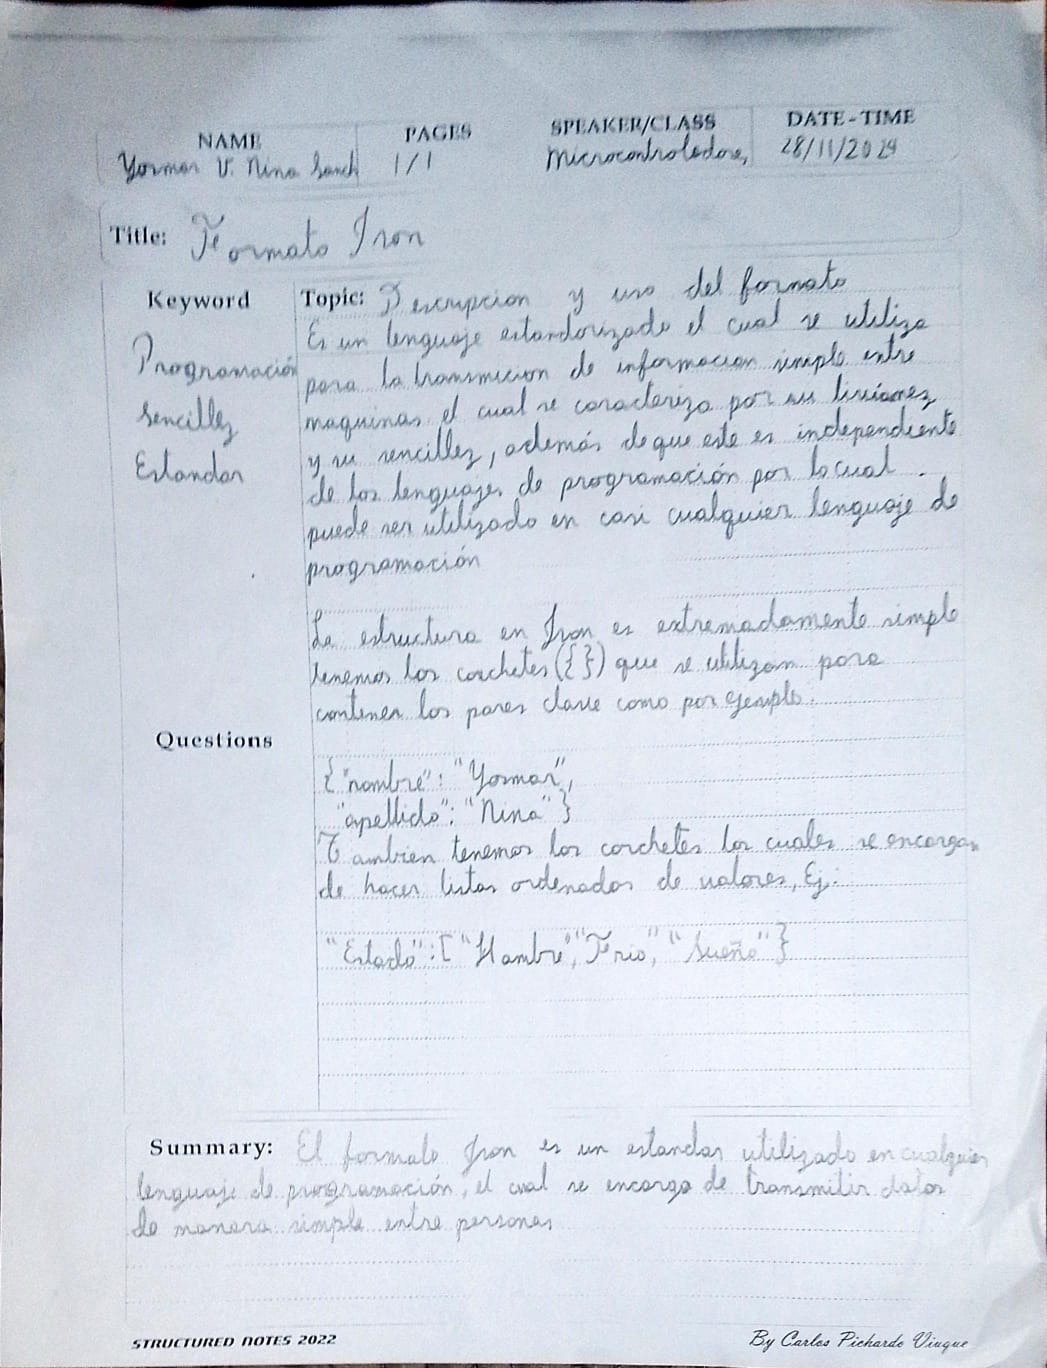 NAME PAGES SPEAKER/CLASS DATE-TIME
Yormar V. Nina Sanch 1/1 Microcontroladores 28/11/2024
Title: Formato Json
Keyword
Programación
Sencillez
Estandar
Topic: Descripcion y uso del formato
Es un lenguaje estandorizado el cual se utiliza
para la transmicion de informacion simple entre
maquinas el cual se caracteriza por su
y su sencillez, además de que este es independiente
de los lenguajes de programación por lo cual
puede ser utilizado en casi cualquier lenguaje de
programación
La estructura en Json es extremadamente simple
tenemos los corchetes ({ }) que se utilizan para
contener los pares clave como por ejemplo:
Questions
{"nombre": "Yormar",
"apellido": "Nina" }
Tambien tenemos los corchetes los cuales se encargan
de hacer listas ordenadas de valores, Ej:
"Estado": [ "Hambre", "Frio", "Sueño" }
Summary: El formato Json es un estandar utilizado en cualquier
lenguaje de programación, el cual se encarga de transmitir datos
de manera simple entre personas
STRUCTURED NOTES 2022
By Carlos Pichardo Viuque